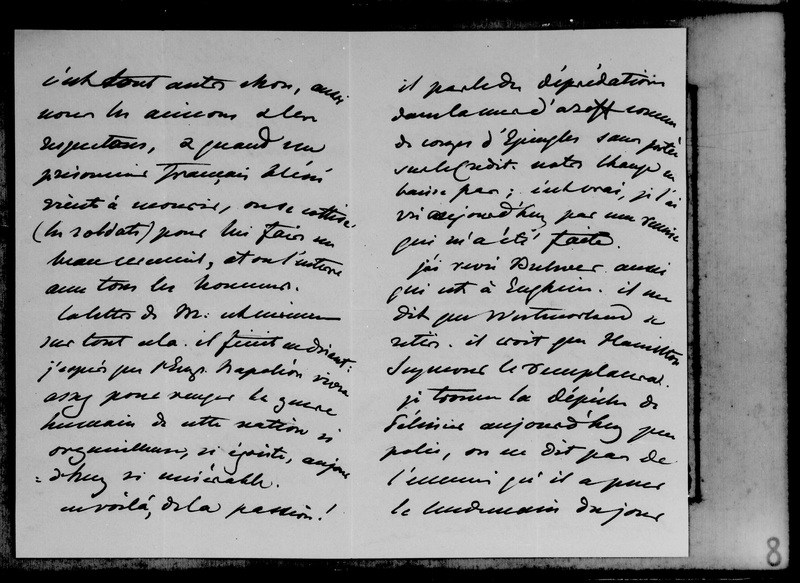 c'est tout autre chose, aussi
nous les aimons & les
respectons, & quand un
prisonnier français blessé
vient à mourir, on se cotise
(les soldats) pour lui faire un
beau cercueil, et on l'enterre
avec tous les honneurs.
la lettre de M:
sur tout cela. il finit en disant:
j'espère que l'Emp. Napoléon vivra
assez pour venger le genre
humain de cette nation si
orgueilleuse, si égoiste, aujour
=d'huy si misérable.
en voilà, de la passion!
il parle des déprédations
dans la mer d'azoff comme
de coups d'Epingles sans portée
sur le Crédit. notre change en
baisse par; c'est vrai, je l'ai
vu aujourd'huy par une remise
qui m'a été faite.
j'ai revu Bulwer aussi
qui est à Enghien. il me
dit que Westmorland se
retire. il croit que Hamilton
Seymour le remplacera.
je trouve la dépêche de
Pélissier aujourd'huy peu
polie, on ne dit pas de
l'ennemi qu'il a peur
le lendemain du jour
8